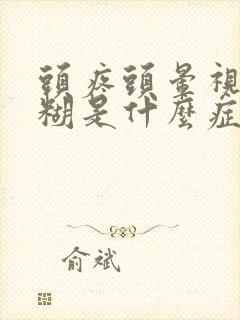 頭疼頭暈視
糊是什麼症
俞斌